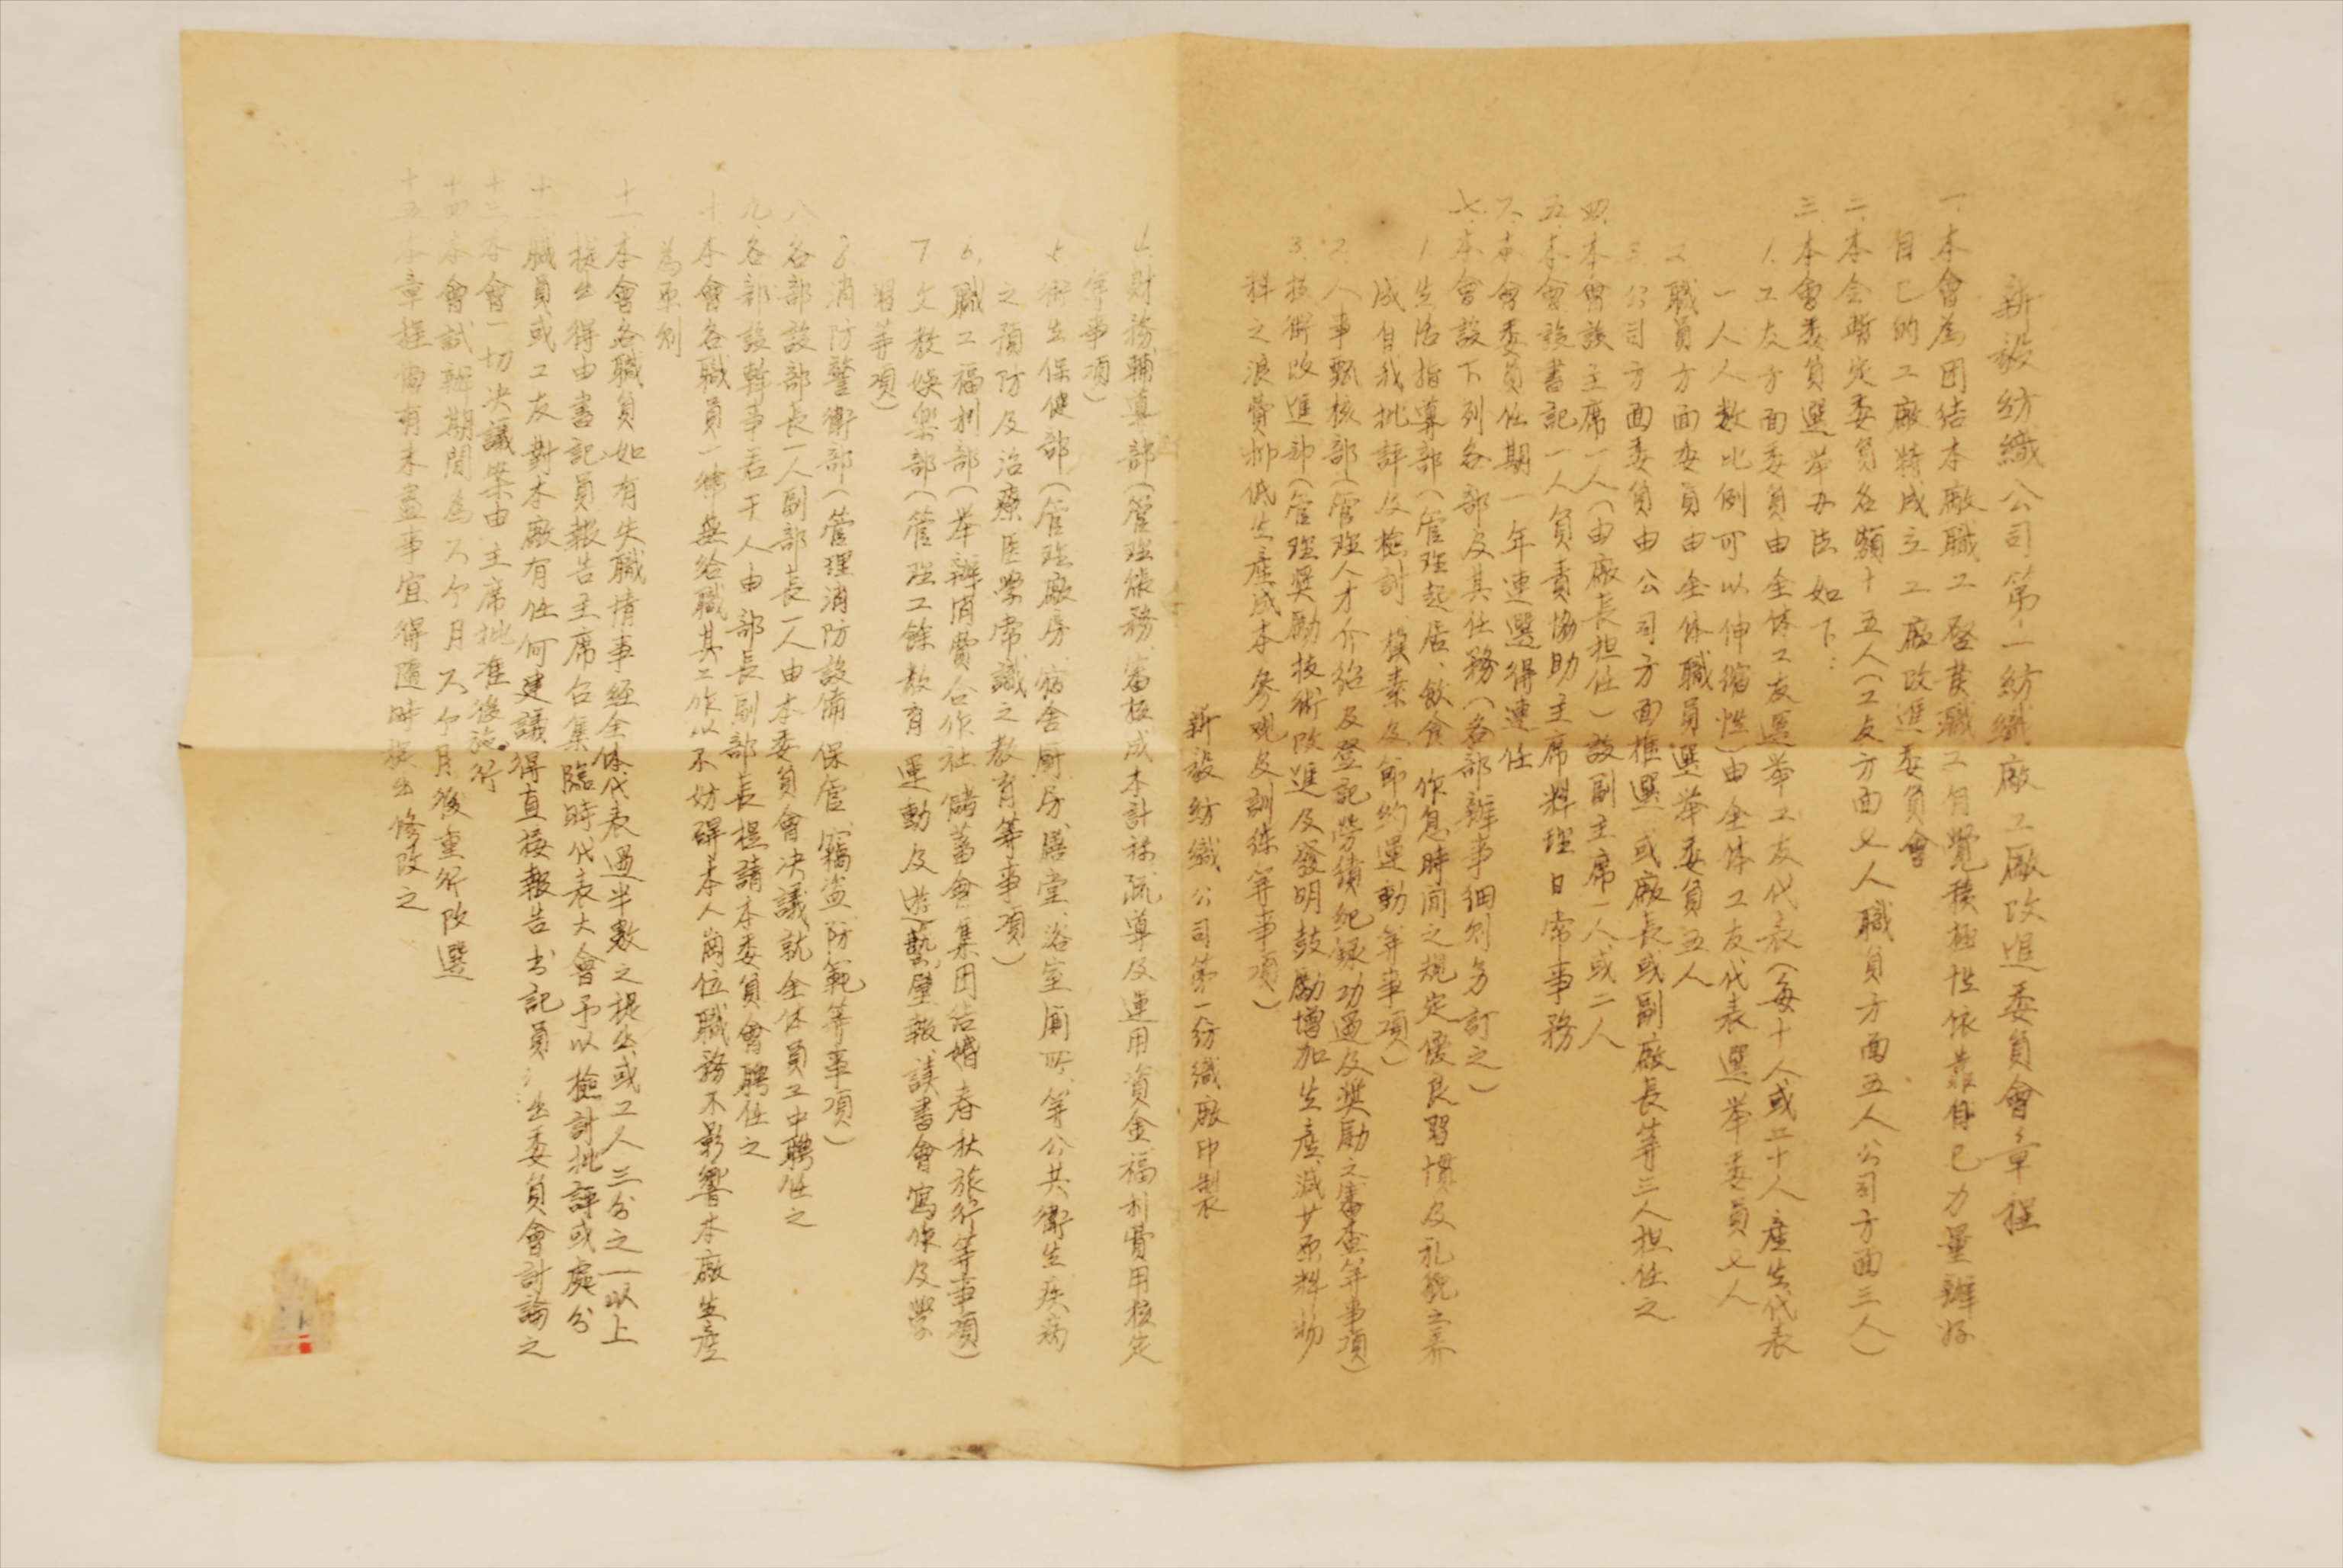 新毅紡織公司第一紡織廠工廠改進委員會章程
一、本會為團结本廠職工啓發職工自覺積極性依靠自己力量辦好
自己的工廠特成立工廠改進委員會
二、本会暫定委員名額十五人(工友方面七人職員方面五人公司方面三人)
三、本會委員選举办法如下：
1.工友方面委員由全体工友選举工友代表(每十人或二十人產生代表
一人人数比例可以伸缩性)由全体工友代表選举委員七人
2.職員方面委員由全体職員選举委員五人
3.公司方面委員由公司方面推選或廠長或副廠長等三人担任之
四、本會設主席一人(由廠長担任)設副主席一人或二人
五、本會設書記一人負責協助主席料理日常事務
六、本會委員任期一年連選得連任
七、本會設下列各部及其任務(各部辦事细则另訂之)
1.生活指導部(管理起居、飲食、作息時间之規定優良習慣及礼貌之养
成自我批評及檢討、樸素及節約運動等事項)
2.人事甄核部(管理人才介绍及登記劳绩纪録功過及奖励之審查等事項)
3.技術改進部(管理奬勵技術改進及發明鼓勵增加生產减少原料物
料之浪費抑低生產成本參观及訓练等事項)
新毅紡織公司第一紡織廠印製
4.財務輔導部(管理賬務、審核成本計祘、疏導及運用資金、福利費用核定
等事項)
5.衛生保健部(管理廠房、宿舍、厨房、膳堂、浴室、厠所等公共衛生疾病
之預防及治療医學常識之教育等事項)
6.職工福利部(举辦消費合作社儲蓄會集团结婚春秋旅行等事項)
7.文教娱楽部(管理工餘教育運動及遊藝、壁報、讀書會寫作及學
習等項)
8.消防警衛部(管理消防設備保管、竊盗防範等事項)
八、各部設部長一人副部長一人由本委員會决議就全体員工中聘任之
九、各部設幹事若干人由部長副部長提請本委員會聘任之
十、本會各職員一律無给職其工作以不妨碍本人崗位職務不影響本廠生產
為原则
十一、本會各職員如有失職情事经全体代表過半數之提出或工人三分之一以上
提出得由書記員報告主席召集臨時代表大會予以檢討批評或處分
十二、職員或工友對本廠有任何建議得直接報告书記員提出委員會討論之
十三、本會一切决議案由主席批准後施行
十四、本會試辦期間為六个月六个月後重行改選
十五、本章程倘有未盡事宜得隨時提出修改之